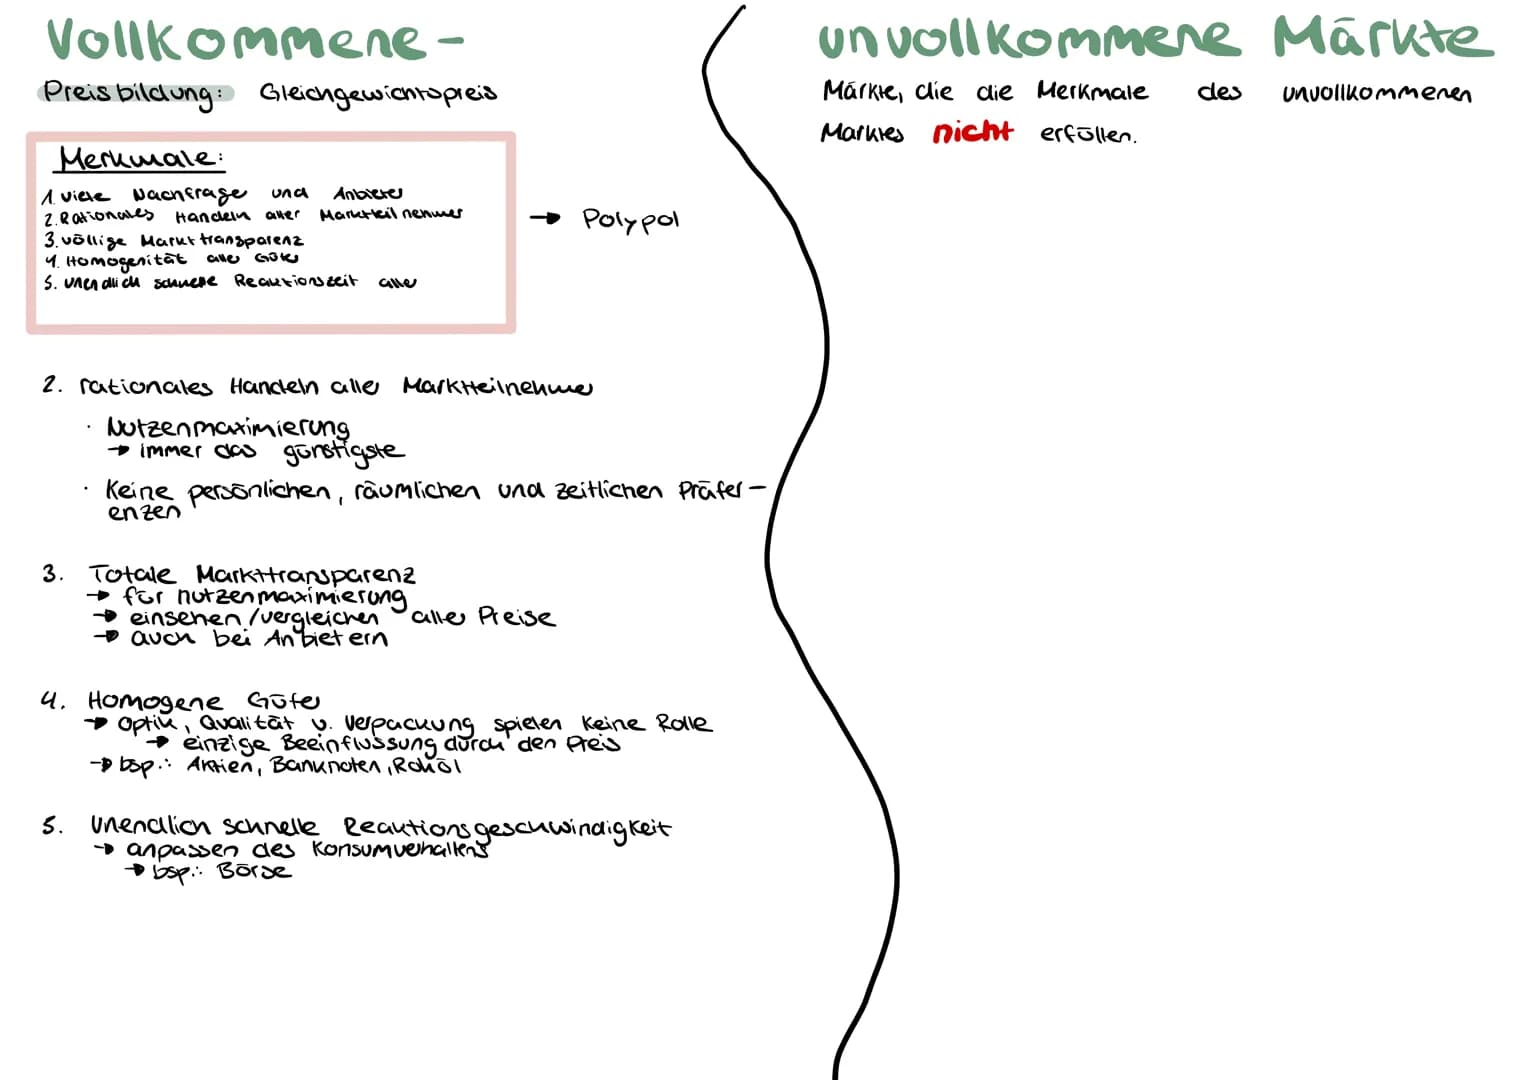 Vollkommene-
Preisbildung: Gleichgewichtspreis
Merkmale:
1. viele Nachfrage und Anbieter
2. Rationales Handeln aller Marktteilnehmer
3. völlige Markttransparenz
4. Homogenität aller Güter
5. unendlich schnelle Reaktionszeit aller
→ Polypol
2. rationales Handeln aller Marktteilnehmer
· Nutzenmaximierung
→ immer das günstigste
· Keine persönlichen, räumlichen und zeitlichen Präfer-
enzen
3. Totale Markttransparenz
→ für nutzenmaximierung
→ einsehen/vergleichen aller Preise
→ auch bei Anbietern
4. Homogene Güter
→ Optik, Qualität u. Verpackung spielen keine Rolle
→ einzige Beeinflussung durch den Preis
→ bsp.: Aktien, Banknoten, Rohöl
5. Unendlich schnelle Reaktionsgeschwindigkeit
→ anpassen des Konsumverhaltens
→ bsp.: Börse
unvollkommene Märkte
Märkte, die die Merkmale des unvollkommenen
Marktes nicht erfüllen.